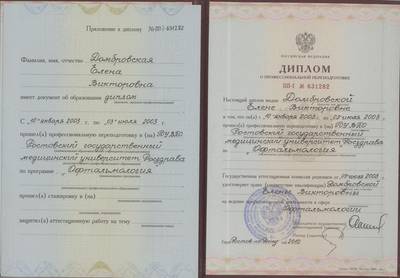 Приложение к диплому № ПП-I 631282
Фамилия, имя, отчество Домбровская
Елена
Викторовна
имеет документ об образовании диплом
С «10» января 2003 г. по «03» июля 2003 г.
прошел(а) профессиональную переподготовку в (на) ГОУ ВПО
Ростовский государственный
медицинский университет Росздрава
по программе Офтальмология
прошел(а) стажировку в (на)
защитил(а) аттестационную работу на тему
РОССИЙСКАЯ ФЕДЕРАЦИЯ
ДИПЛОМ
О ПРОФЕССИОНАЛЬНОЙ ПЕРЕПОДГОТОВКЕ
ПП-I № 631282
Настоящий диплом выдан Домбровской
Елене Викторовне
в том, что он(а) с «10» января 2003 г. по «03» июля 2003 г.
прошел(а) профессиональную переподготовку в (на) ГОУ ВПО
Ростовский государственный
медицинский университет Росздрава
по Офтальмология
Государственная аттестационная комиссия решением от «03» июля 2003 г.
удостоверяет право (соответствие квалификации) Домбровской
Елены Викторовны
на ведение профессиональной деятельности в сфере
Офтальмологии
Город Ростов-на-Дону